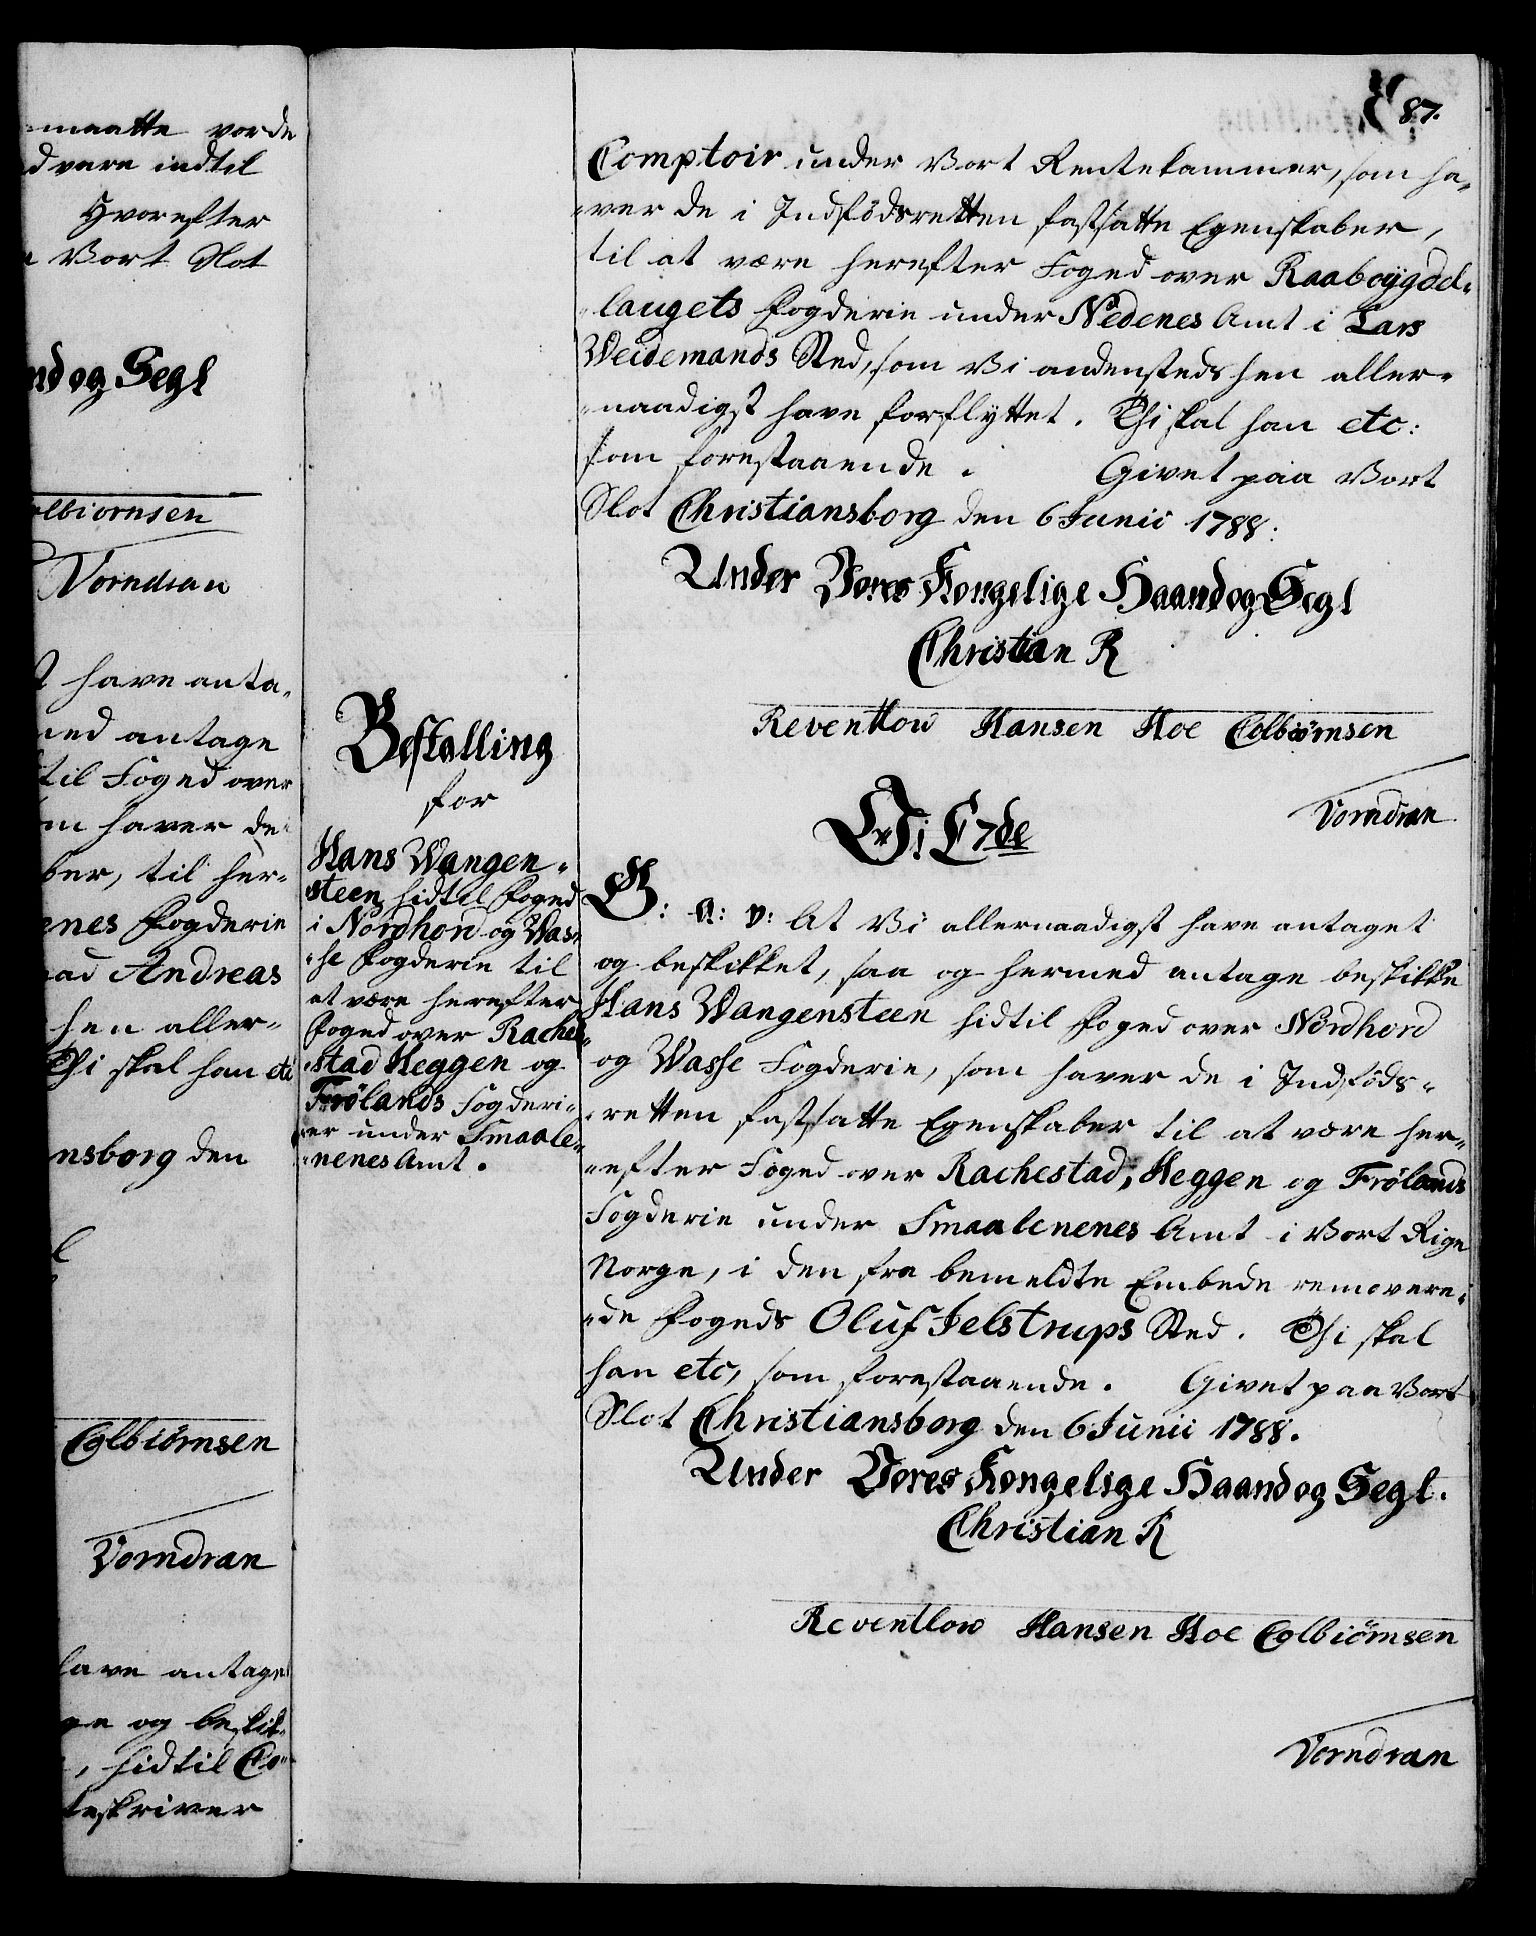 maatte vorde
dvare indtil
Hvorefter
Vort Slot
nd og Segl
olbiornsen
Vorndran
have anta-
med antage
til Foged over
m haver de
ber, til her-
enes Fogderie
Andreas
hen aller-
Thi skal han etc
nsborg den
Colbiörnsen
Vorndran
have antage
og beskik-
, hidtil Co-
teskriver
Bestalling
for
Hans Wangen-
steen, hidtil Foged
i Nordhord og Was-
-se Fogderie til
at være herefter
Foged over Rache-
-stad Heggen og
Frølands Fogderi-
-er under Smaale-
-nenes Amt.
87.
Comptoir under Vort Rentekammer, som ha-
-ver de i Indfødsretten fastsatte Egenskaber,
til at være herefter Foged over Raaboygdel-
-laugets Fogderie under Nedenes Amt i Lars
Weidemands Sted, som Vi andensteds hen aller-
-naadigst have forflyttet. Thi skal han etc:
som forestaaende. Givet paa Vort
Slot Christiansborg den 6 Junii 1788:
Under Vores Kongelige Haand og Segl
Christian R
Reventlow Hansen Hoe Colbiörnsen
Vorndran
Vi C 7de
G: A: V: At Vi allernaadigst have antaget
og beskikket, saa og hermed antage beskikke
Hans Wangensteen hidtil Foged over Nordhord
og Wasse Fogderie, som haver de i Indføds-
-retten fastsatte Egenskaber til at være her-
-efter Foged over Rachestad, Heggen og Frølands
Fogderie under Smaalenenes Amt i Vort Rige
Norge, i den fra bemeldte Embede removere-
-de Fogeds Oluf Jelstrups Sted. Thi skal
han etc, som forestaaende. Givet paa Vort
Slot Christiansborg den 6 Junii 1788.
Under Vores Kongelige Haand og Segl.
Christian R
Reventlow Hansen Hoe Colbiörnsen
Vorndran